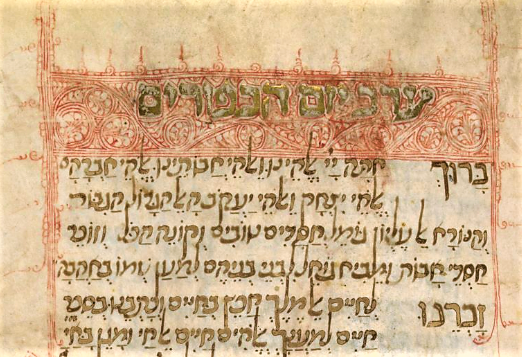 ערב יום הכפורים
ברוך אתה יי אלהינו ואלהי אבותינו אלהי אברהם
אלהי יצחק ואלהי יעקב האל הגדול הגבור
והנורא אל עליון גומל חסדים טובים וקונה הכל וזוכר
חסדי אבות ומביא גואל לבני בניהם למען שמו באהבה
זכרנו לחיים אל מלך חפץ בחיים וכתבנו בספר
חיים למענך אלהים חיים אל חי ומגן